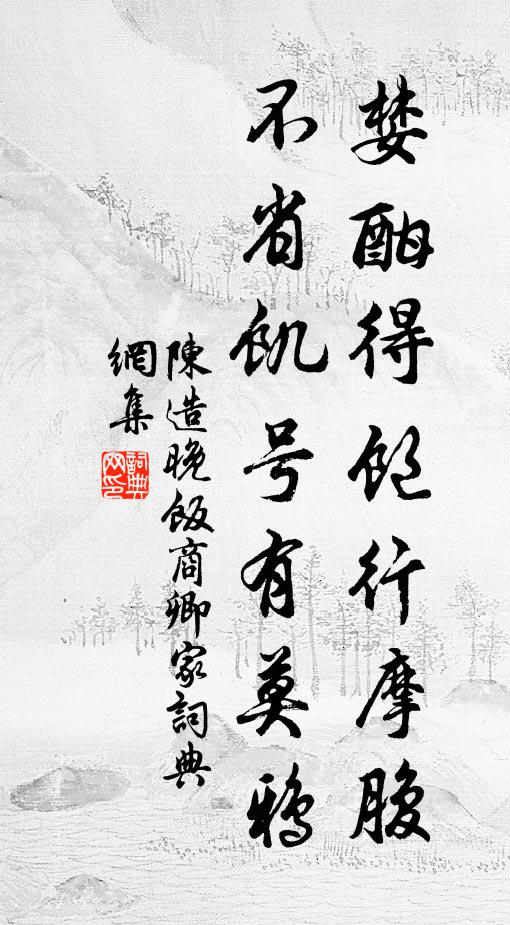 婪酣得飽行摩腹
不省飢号有莫鴉
陳造晚飯商卿家詞典
網集
詞典網印